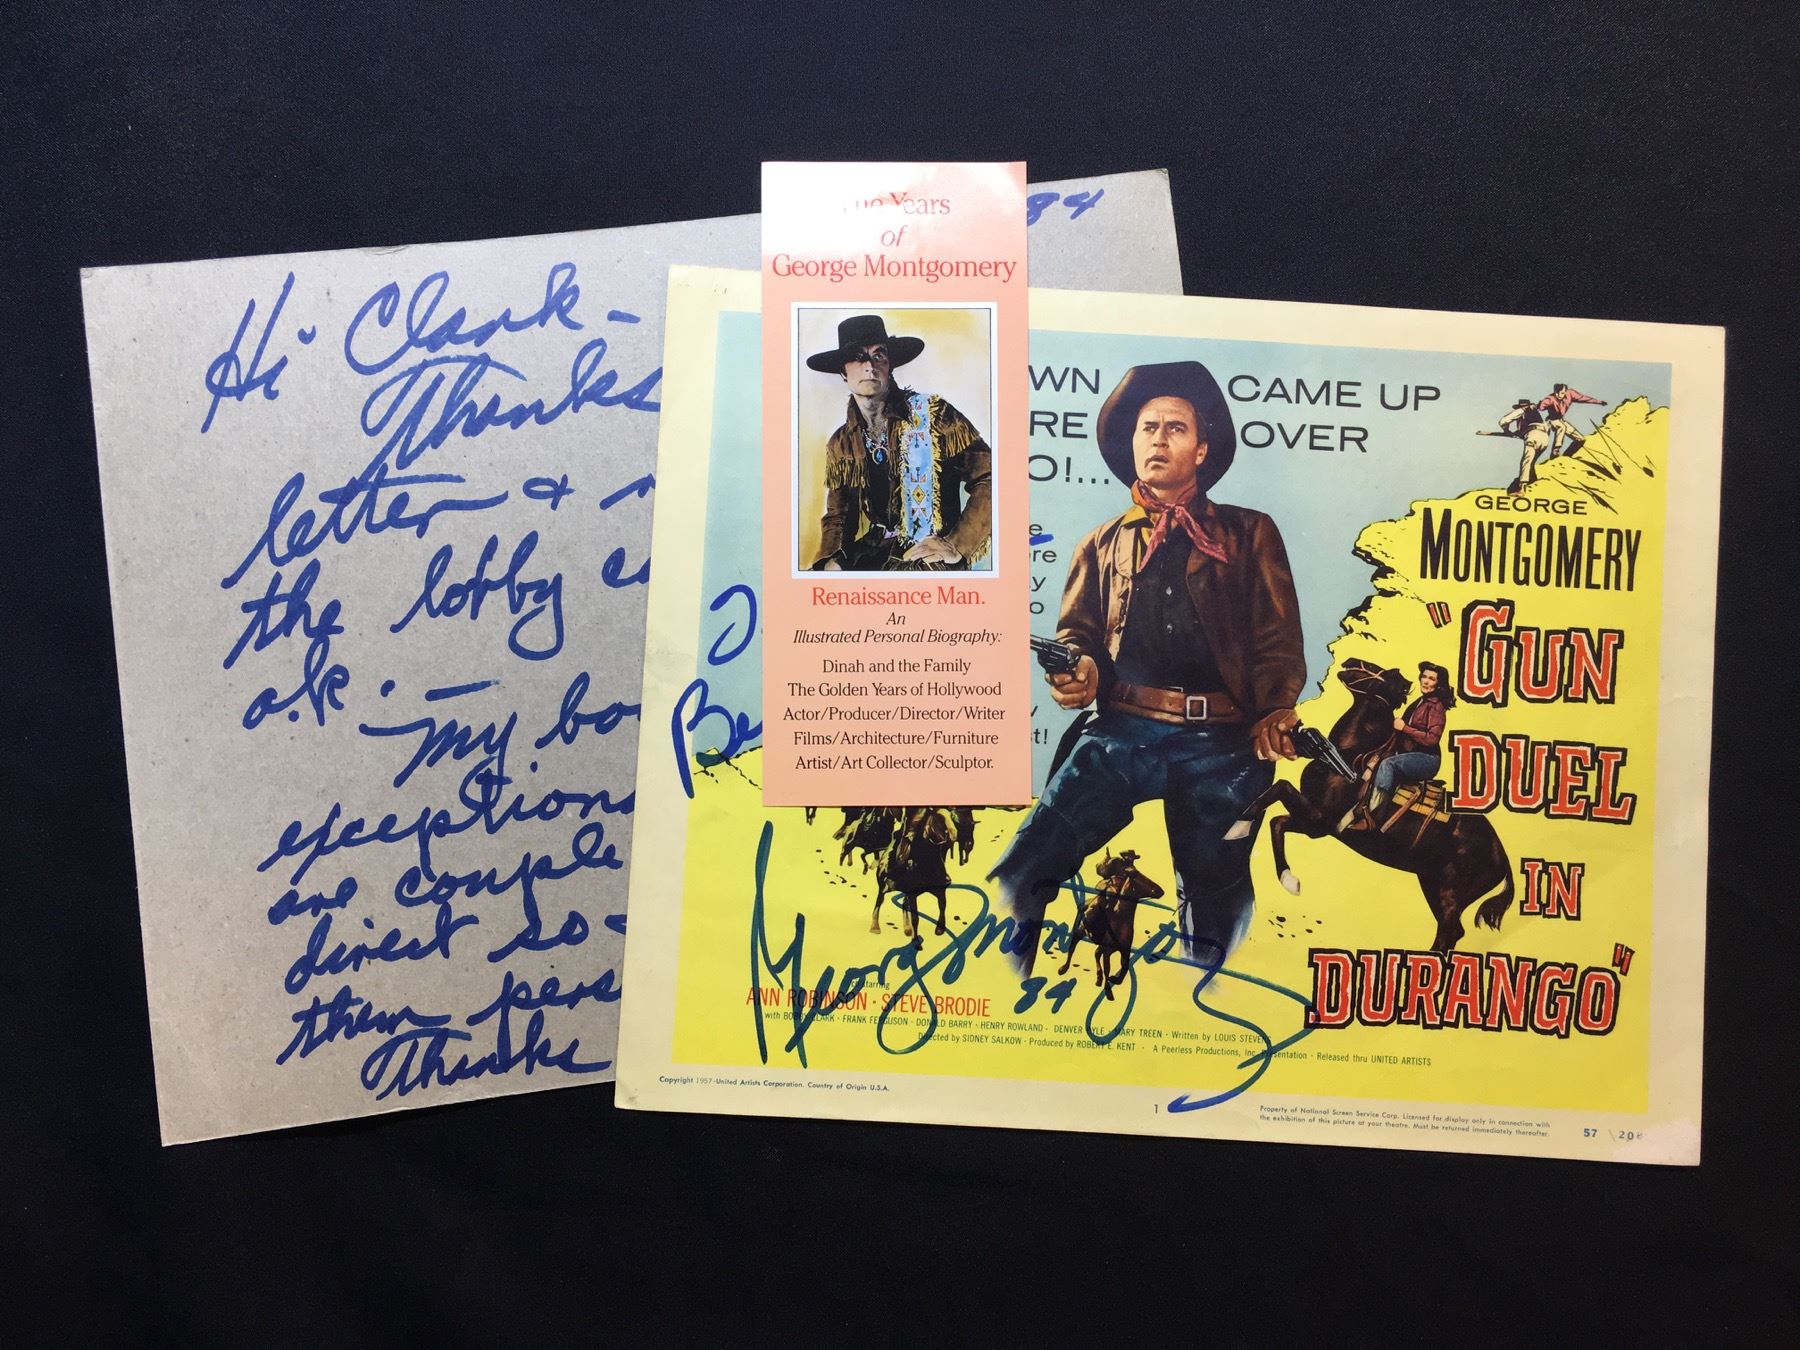 84
Hi Clark -
Thanks
letter &
the lobby
o.k. -
my
exceptiona
are comple
direct so -
them pers
Thanks
Years
of
George Montgomery
Renaissance Man.
An
Illustrated Personal Biography:
Dinah and the Family
The Golden Years of Hollywood
Actor/Producer/Director/Writer
Films/Architecture/Furniture
Artist/Art Collector/Sculptor.
WN CAME UP
RE OVER
O!...
e
re
y
o
t!
GEORGE
MONTGOMERY
"GUN
DUEL
IN
DURANGO"
Be
George Montgomery
84
co-starring
ANN ROBINSON · STEVE BRODIE
with BOBBY CLARK · FRANK FERGUSON · DONALD BARRY · HENRY ROWLAND · DENVER PYLE · MARY TREEN · Written by LOUIS STEVENS
Directed by SIDNEY SALKOW · Produced by ROBERT E. KENT · A Peerless Productions, Inc. Presentation · Released thru UNITED ARTISTS
Copyright 1957-United Artists Corporation. Country of Origin U.S.A.
1
Property of National Screen Service Corp. Licensed for display only in connection with
the exhibition of this picture at your theatre. Must be returned immediately thereafter.
57 208